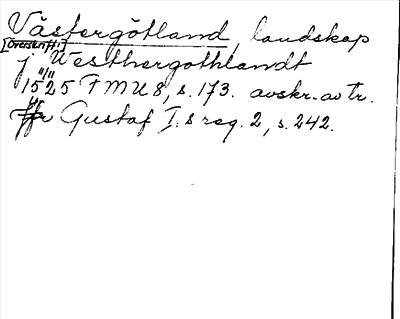 Västergötland, landskap
[Överskrift:]
j Westhergothlandt
11/11
1525 FMU 8, s. 173. avskr. av tr.
Jfr Gustaf I:s reg. 2, s. 242.